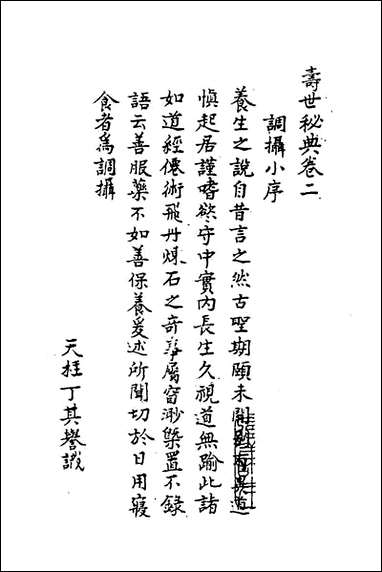 壽世秘典卷二
調攝小序
養生之說自昔言之然古聖期頤未聞別有異道
慎起居謹嗜欲守中實內長生久視道無踰此諸
如道經僊術飛丹煉石之奇事屬窅渺槩置不錄
語云善服藥不如善保養爰述所聞切於日用寢
食者爲調攝
天柱丁其譽識